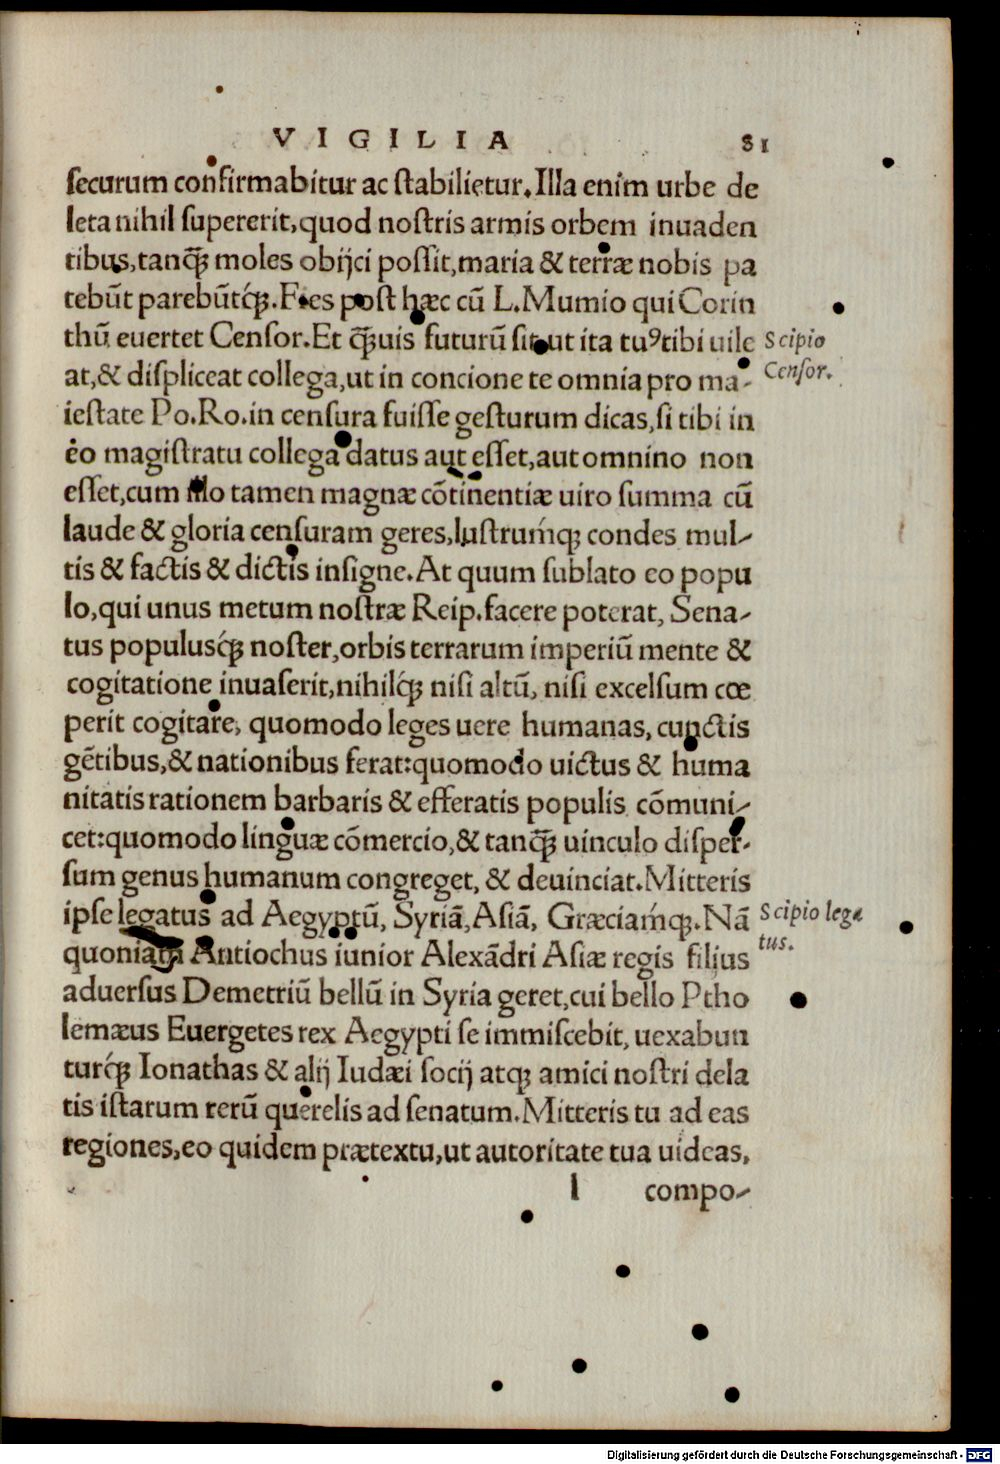 VIGILIA 81
securum confirmabitur ac stabilietur. Illa enim urbe de
leta nihil supererit, quod nostris armis orbem inuaden
tibus, tanq̃ꝫ moles obijci possit, maria & terræ nobis pa
tebũt parebũtq́ꝫ. Fies post hæc cũ L. Mumio qui Corin
thũ euertet Censor. Et q̃ꝫuis futurũ sit, ut ita tuꝰ tibi uile
Scipio
at, & displiceat collega, ut in concione te omnia pro ma-
Censor.
iestate Po. Ro. in censura fuisse gesturum dicas, si tibi in
eo magistratu collega datus aut esset, aut omnino non
esset, cum illo tamen magnæ cõtinentiæ uiro summa cũ
laude & gloria censuram geres, lustrumq́ꝫ condes mul-
tis & factis & dictis insigne. At quum sublato eo popu
lo, qui unus metum nostræ Reip. facere poterat, Sena-
tus populusq́ꝫ noster, orbis terrarum imperiũ mente &
cogitatione inuaserit, nihilq́ꝫ nisi altũ, nisi excelsum cœ
perit cogitare, quomodo leges uere humanas, cunctis
gẽtibus, & nationibus ferat: quomodo uictus & huma
nitatis rationem barbaris & efferatis populis cõmuni-
cet: quomodo linguæ cõmercio, & tanq̃ꝫ uinculo disper-
sum genus humanum congreget, & deuinciat. Mitteris
ipse legatus ad Aegyptũ, Syriã, Asiã, Græciamq́ꝫ. Nã
Scipio lega
quoniam Antiochus iunior Alexãdri Asiæ regis filius
tus.
aduersus Demetriũ bellũ in Syria geret, cui bello Ptho
lemæus Euergetes rex Aegypti se immiscebit, uexabun
turq́ꝫ Ionathas & alij Iudæi socij atqꝫ amici nostri dela
tis istarum rerũ querelis ad senatum. Mitteris tu ad eas
regiones, eo quidem prætextu, ut autoritate tua uideas,
l compo-
Digitalisierung gefördert durch die Deutsche Forschungsgemeinschaft - DFG